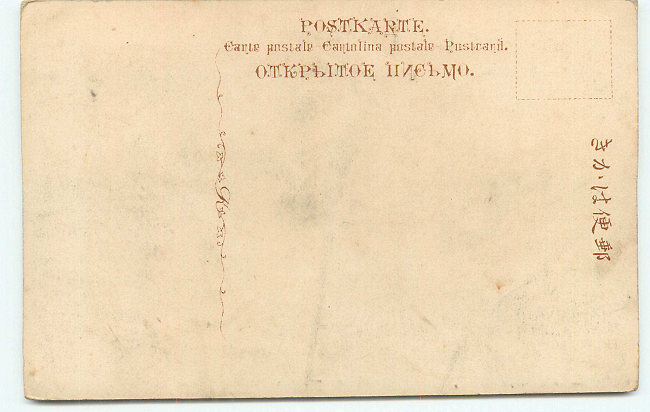 POSTKARTE.
Carte postale Cartolina postale Postcard.
ОТКРЫТОЕ ПИСЬМО.
郵便はがき